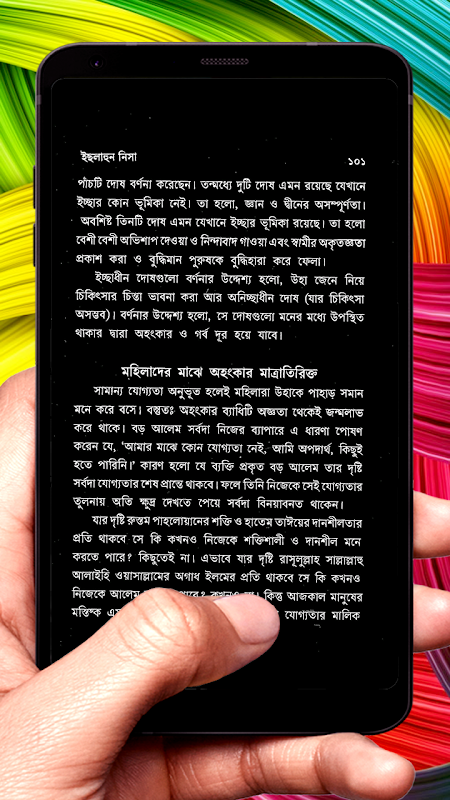 ইছলাহুন নিসা ১০১
পাঁচটি দোষ বর্ণনা করেছেন। তন্মধ্যে দুটি দোষ এমন রয়েছে যেখানে
ইচ্ছার কোন ভূমিকা নেই। তা হলো, জ্ঞান ও দ্বীনের অসম্পূর্ণতা।
অবশিষ্ট তিনটি দোষ এমন যেখানে ইচ্ছার ভূমিকা রয়েছে। তা হলো
বেশী বেশী অভিশাপ দেওয়া ও নিন্দাবাদ গাওয়া এবং স্বামীর অকৃতজ্ঞতা
প্রকাশ করা ও বুদ্ধিমান পুরুষকে বুদ্ধিহারা করে ফেলা।
ইচ্ছাধীন দোষগুলো বর্ণনার উদ্দেশ্য হলো, উহা জেনে নিয়ে
চিকিৎসার চিন্তা ভাবনা করা আর অনিচ্ছাধীন দোষ (যার চিকিৎসা
অসম্ভব)। বর্ণনার উদ্দেশ্য হলো, সে দোষগুলো মনের মধ্যে উপস্থিত
থাকার দ্বারা অহংকার ও গর্ব দূর হয়ে যাবে।
মহিলাদের মাঝে অহংকার মাত্রাতিরিক্ত
সামান্য যোগ্যতা অনুভূত হলেই মহিলারা উহাকে পাহাড় সমান
মনে করে বসে। বস্তুতঃ অহংকার ব্যাধিটি অজ্ঞতা থেকেই জন্মলাভ
করে থাকে। বড় আলেম সর্বদা নিজের ব্যাপারে এ ধারণা পোষণ
করেন যে, 'আমার মাঝে কোন যোগ্যতা নেই, আমি অপদার্থ, কিছুই
হতে পারিনি।' কারণ হলো যে ব্যক্তি প্রকৃত বড় আলেম তার দৃষ্টি
সর্বদা যোগ্যতার শেষ প্রান্তে থাকবে। ফলে তিনি নিজেকে সেই যোগ্যতার
তুলনায় অতি ক্ষুদ্র দেখতে পেয়ে সর্বদা বিনয়াবনত থাকেন।
যার দৃষ্টি রুস্তম পাহলোয়ানের শক্তি ও হাতেম তাঈয়ের দানশীলতার
প্রতি থাকবে সে কি কখনও নিজেকে শক্তিশালী ও দানশীল মনে
করতে পারে? কিছুতেই না। এভাবে যার দৃষ্টি রাসূলুল্লাহ সাল্লাল্লাহু
আলাইহি ওয়াসাল্লামের অগাধ ইলমের প্রতি থাকবে সে কি কখনও
নিজেকে আলেম পারে? কখনও না। কিন্তু আজকাল মানুষের
মস্তিষ্ক যোগ্যতার মালিক